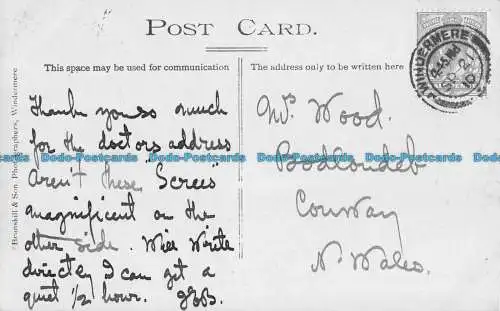 POST CARD.
This space may be used for communication
The address only to be written here
Brunskill & Son, Photographers, Windermere
Thanks you so much
for the doctors address
Aren't these "Screes"
magnificent on the
other side. Will write
directly I can get a
quiet 1/2 hour. JGB.
Mrs. Wood.
Bodlondeb
Conway
N. Wales.
WINDERMERE
Dodo-Postcards Dodo-Postcards Dodo-Postcards Dodo-Postcards Dodo-Postcards